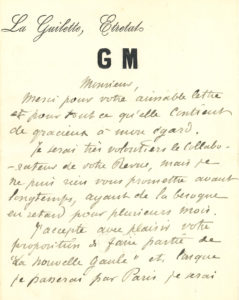 La Guillette, Etretat
G M
Monsieur,
Merci pour votre aimable lettre
et pour tout ce qu'elle contient
de gracieux à mon égard.
Je serai très volontiers le Collabo-
-rateur de votre Revue, mais je
ne puis rien vous promettre avant
longtemps, ayant de la besogne
en retard pour plusieurs mois.
J'accepte avec plaisir votre
proposition de faire partie de
"La Nouvelle Gaule" et, lorsque
je passerai par Paris je serai